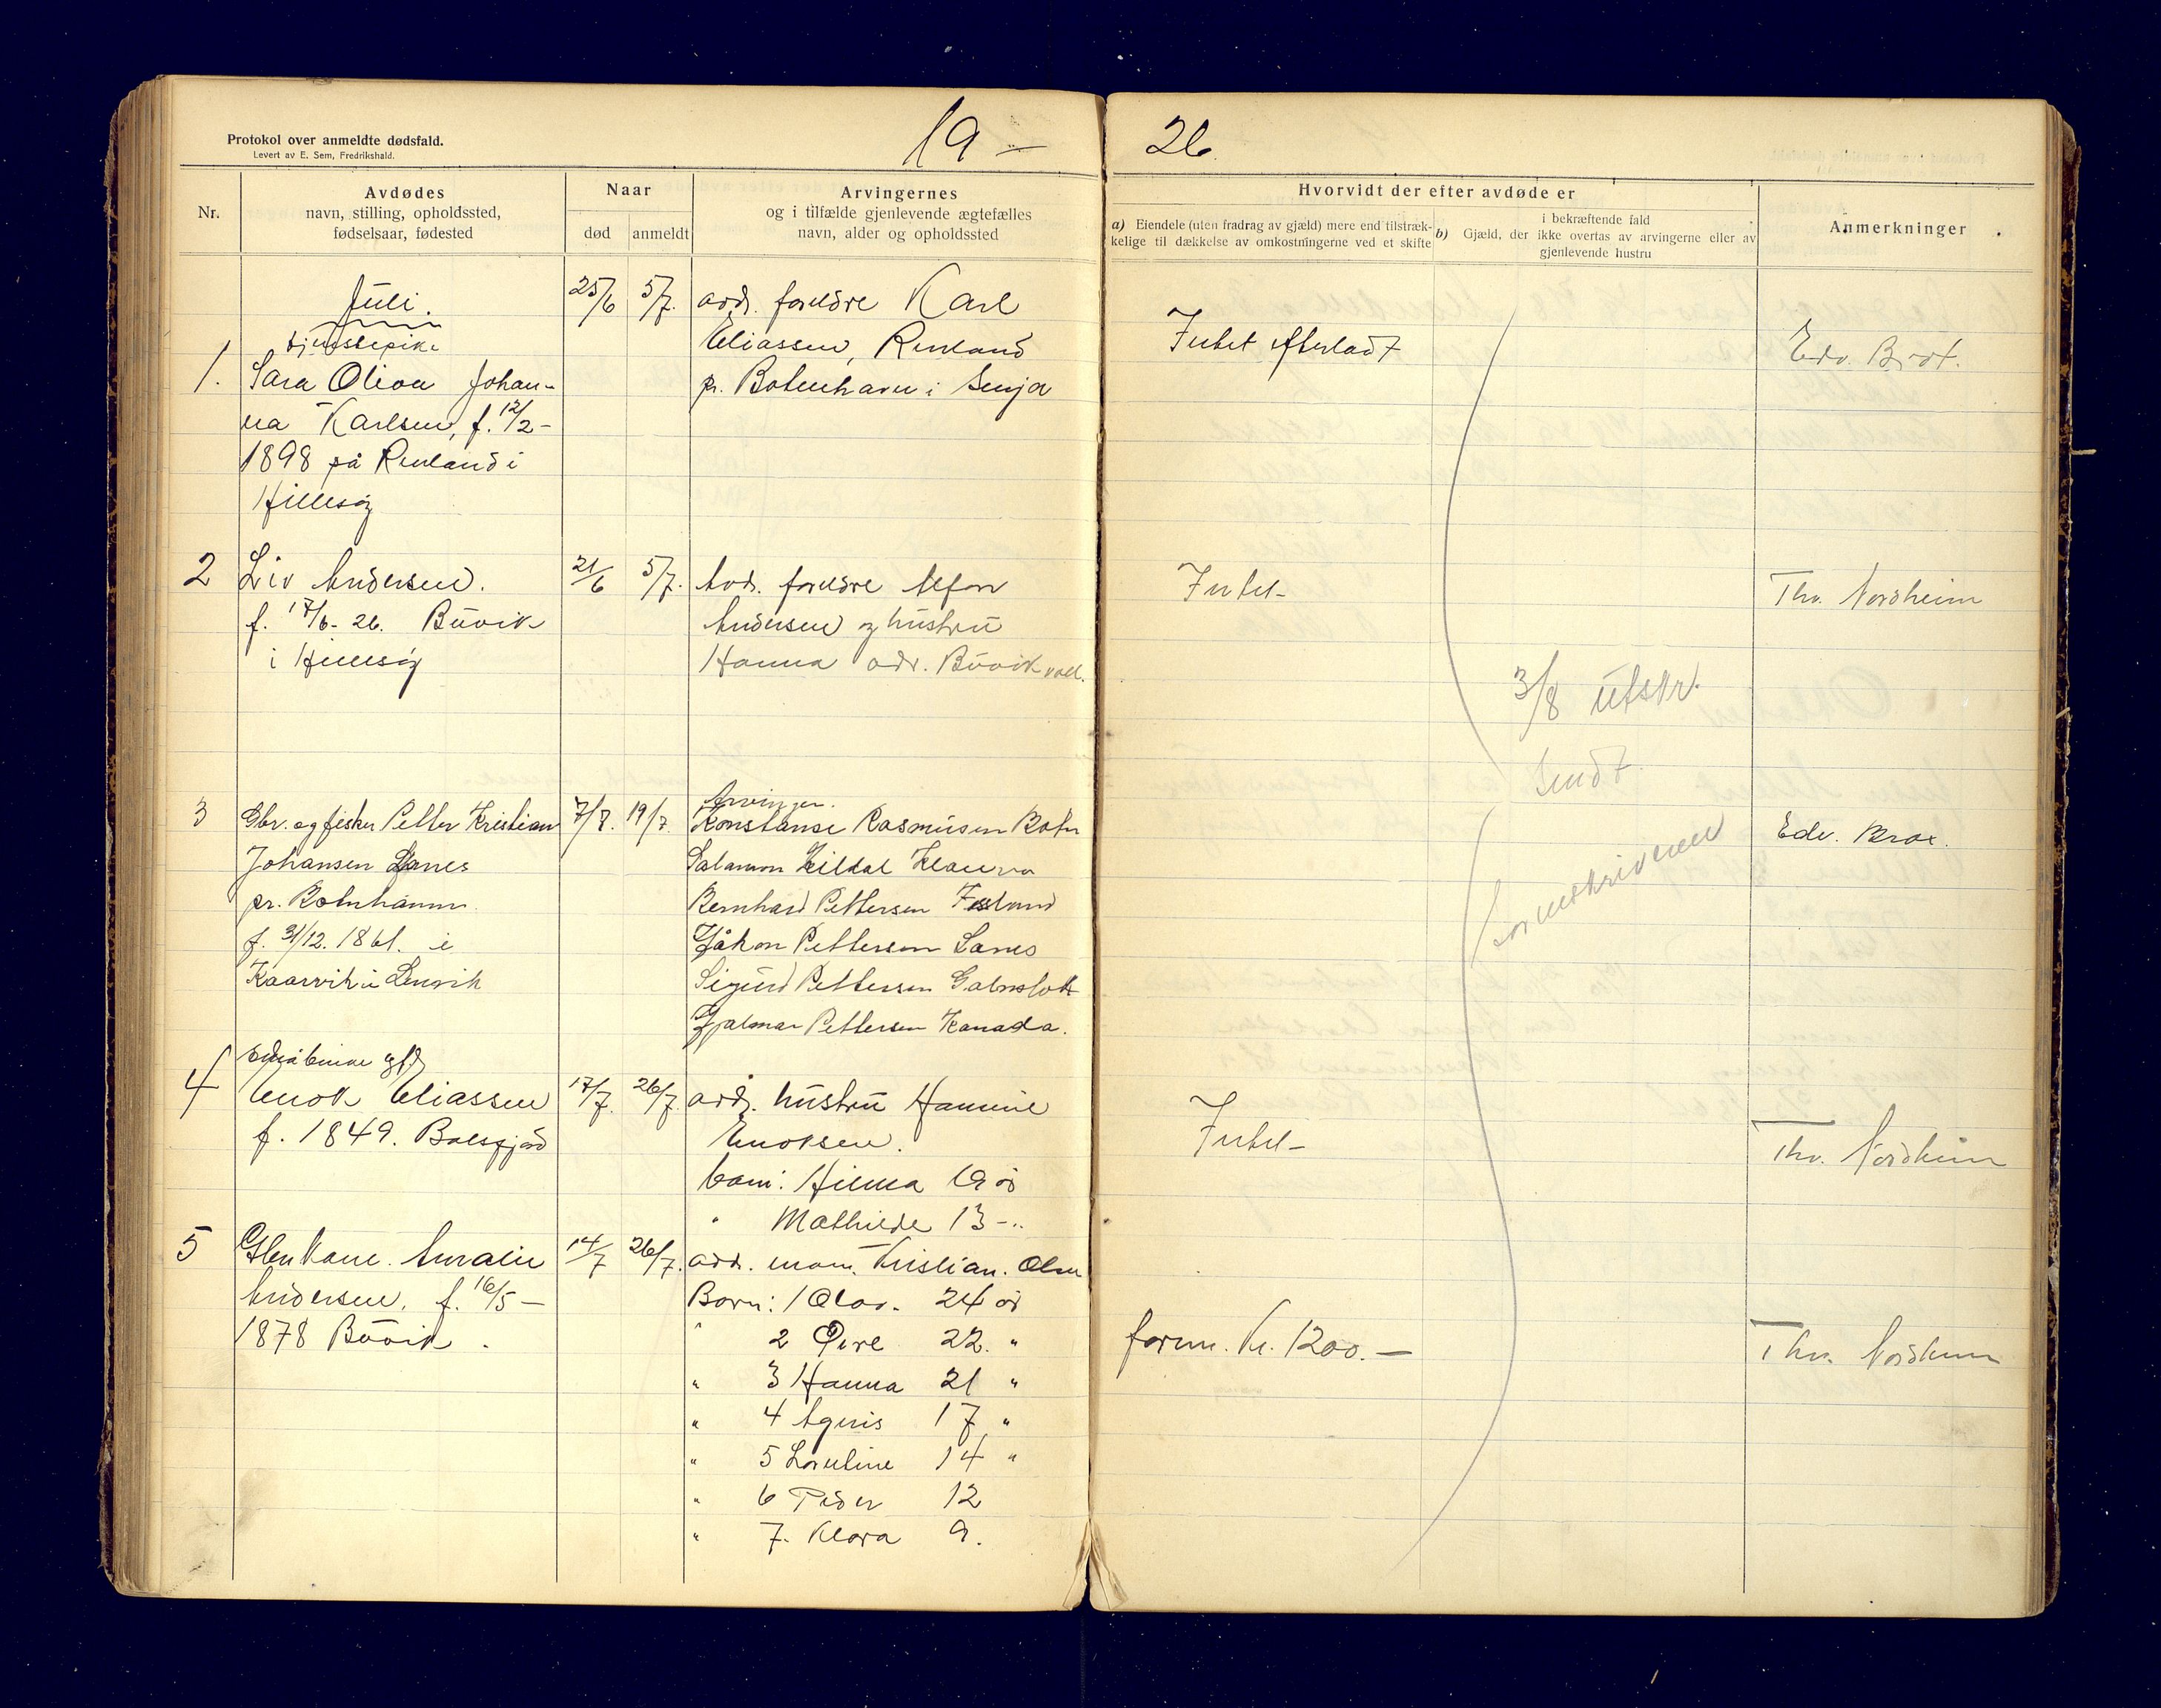 Protokol over anmeldte dødsfald.
Levert av E. Sem, Fredrikshald.
19 — 26.
Nr.
Avdødes
navn, stilling, opholdssted,
fødselsaar, fødested
Naar
død anmeldt
Arvingernes
og i tilfælde gjenlevende ægtefælles
navn, alder og opholdssted
Hvorvidt der efter avdøde er
a) Eiendele (uten fradrag av gjæld) mere end tilstræk-
kelige til dækkelse av omkostningerne ved et skifte
b) i bekræftende fald
Gjæld, der ikke overtas av arvingerne eller av
gjenlevende hustru
Anmerkninger
Juli.
tjenstepike
1. Sara Oliva Johan-
na Karlsen, f. 12/2 -
1898 på Renland i
Hillesøy
25/6 5/7.
avd. foreldre Karl
Eliassen, Renland
pr. Botenhavn i Senja
Intet efterladt
Edv. Brox.
2 Liv Andersen.
f. 17/6 - 26. Buvik
i Hillesøy
21/6 5/7.
Avd. foreldre Alfon
Andersen og hustru
Hanna adr. Buvik
Intet -
Thv. Nordheim
3/8 utskr.
sendt.
3 Gbr. og fisker Petter Kristian
Johansen Lanes
pr. Botnhamn.
f. 31/12. 1861. i
Kaarvik i Lenvik
7/7. 19/7.
Arvinger.
Konstanse Rasmusen Botn
Salamon Kildal Klauva
Bernhard Pettersen
Håkon Pettersen Lanes
Sigurd Pettersen
Hjalmar Pettersen Kanada.
sorenskriveren
Edv. Brox.
4
Enok Eliassen
f. 1849. Balsfjord
17/7. 26/7.
avd. hustru Hannine
Enoksen.
barn: Hilma 19 år
" Mathilde 13 - "
Intet -
Thv. Nordheim
5 Gbr. kone. Amalie
Andersen. f. 16/5 -
1878 Buvik.
14/7 26/7.
avd. mann. Kristian. Olsen
Barn: 1 Olav. 24 år
" 2 Peve 22. "
" 3 Hanna 21 "
" 4 Agnis 17 "
" 5 Loreline 14 "
" 6 Peder 12
" 7. Klara 9.
form. Kr. 1200. —
Thv. Nordheim